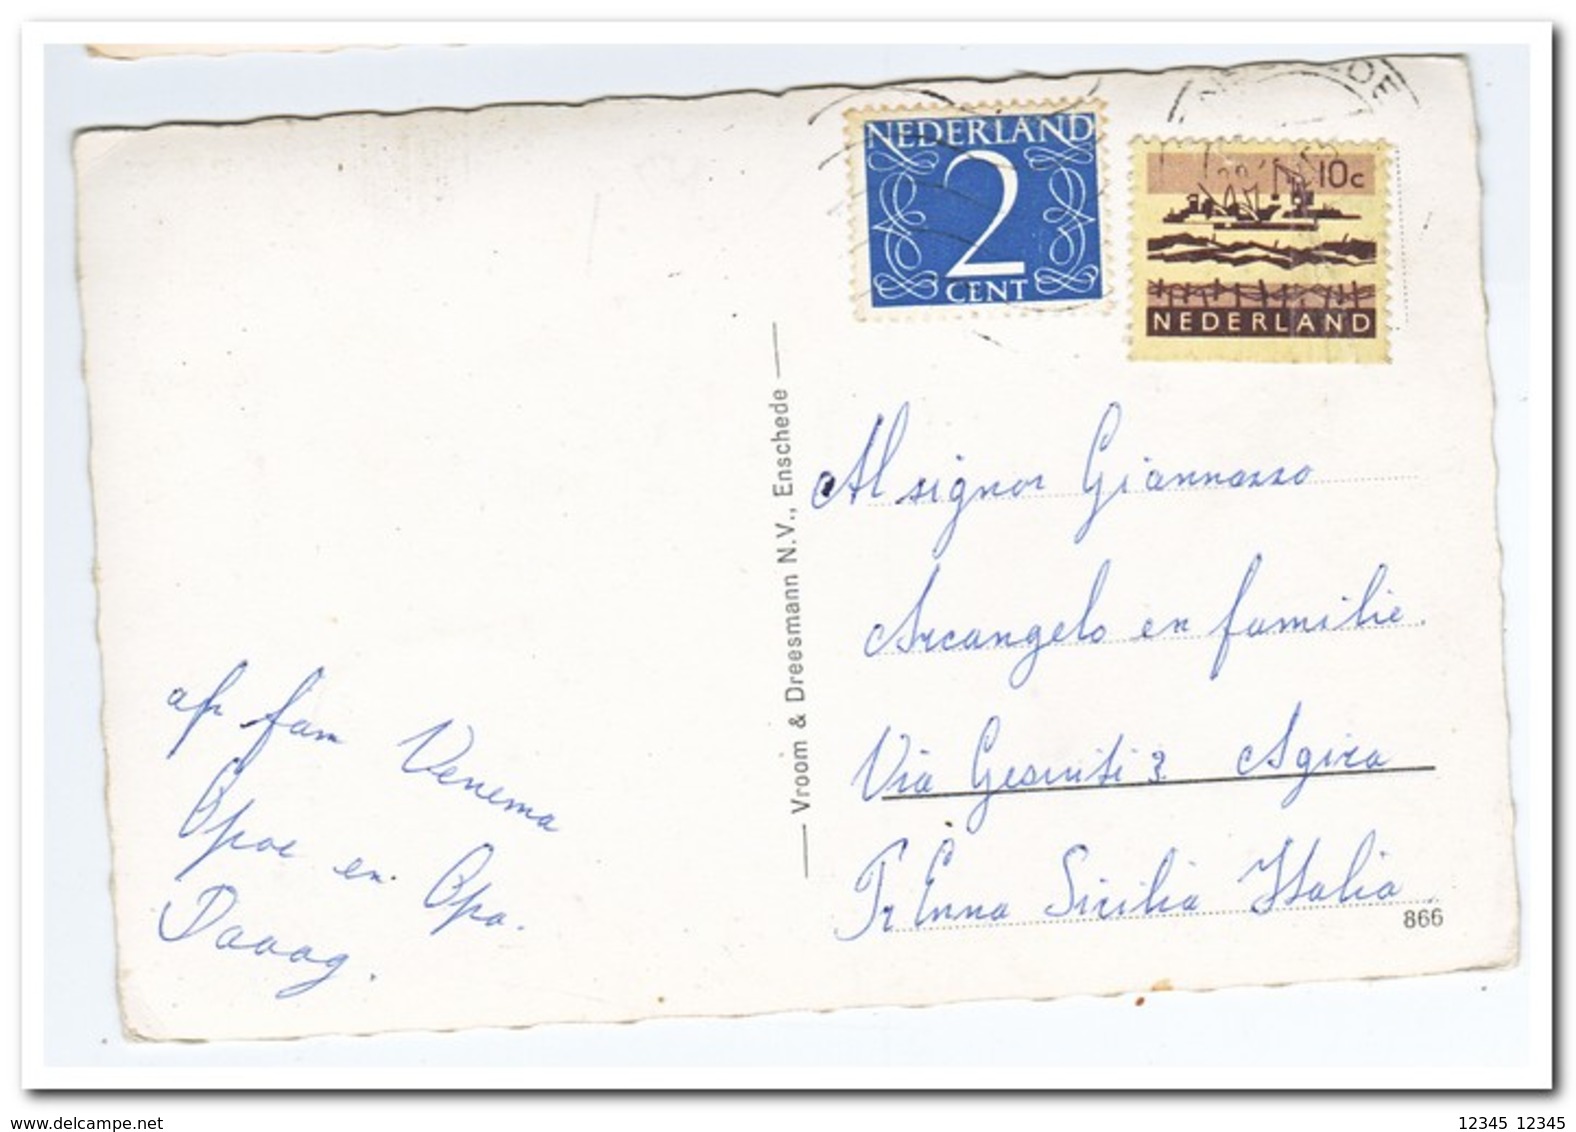 NEDERLAND
2
CENT
10c
NEDERLAND
Vroom & Dreesmann N.V., Enschede
Al signor Giannazzo
Arcangelo en familie.
Via Gesuiti 3 Agira
Pr Enna Sicilia Italia
866
afz fam Venema
Opoe en Opa.
Daaag.
www.delcampe.net
12345 12345